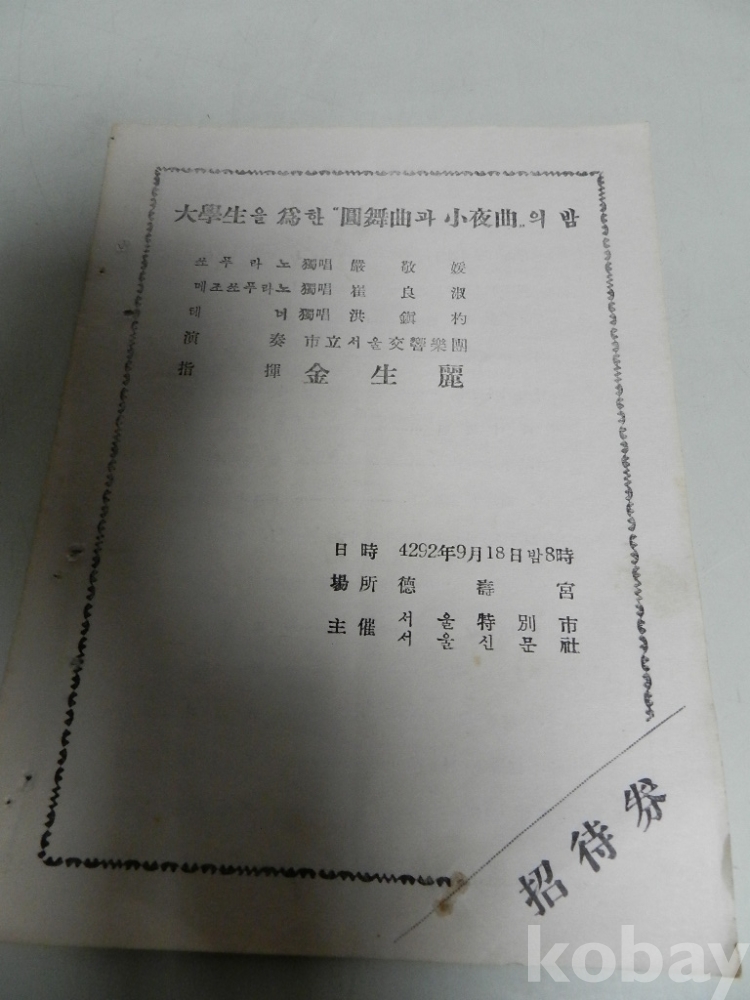 大學生을 爲한 “圓舞曲과 小夜曲„의 밤
쏘푸라노 獨唱 嚴敬媛
메조쏘푸라노 獨唱 崔良淑
테너 獨唱 洪鎭杓
演奏 市立서울交響樂團
指揮 金生麗
日時 4292年9月18日밤8時
場所 德壽宮
主催 서울特別市
서울신문社
招待券
kobay